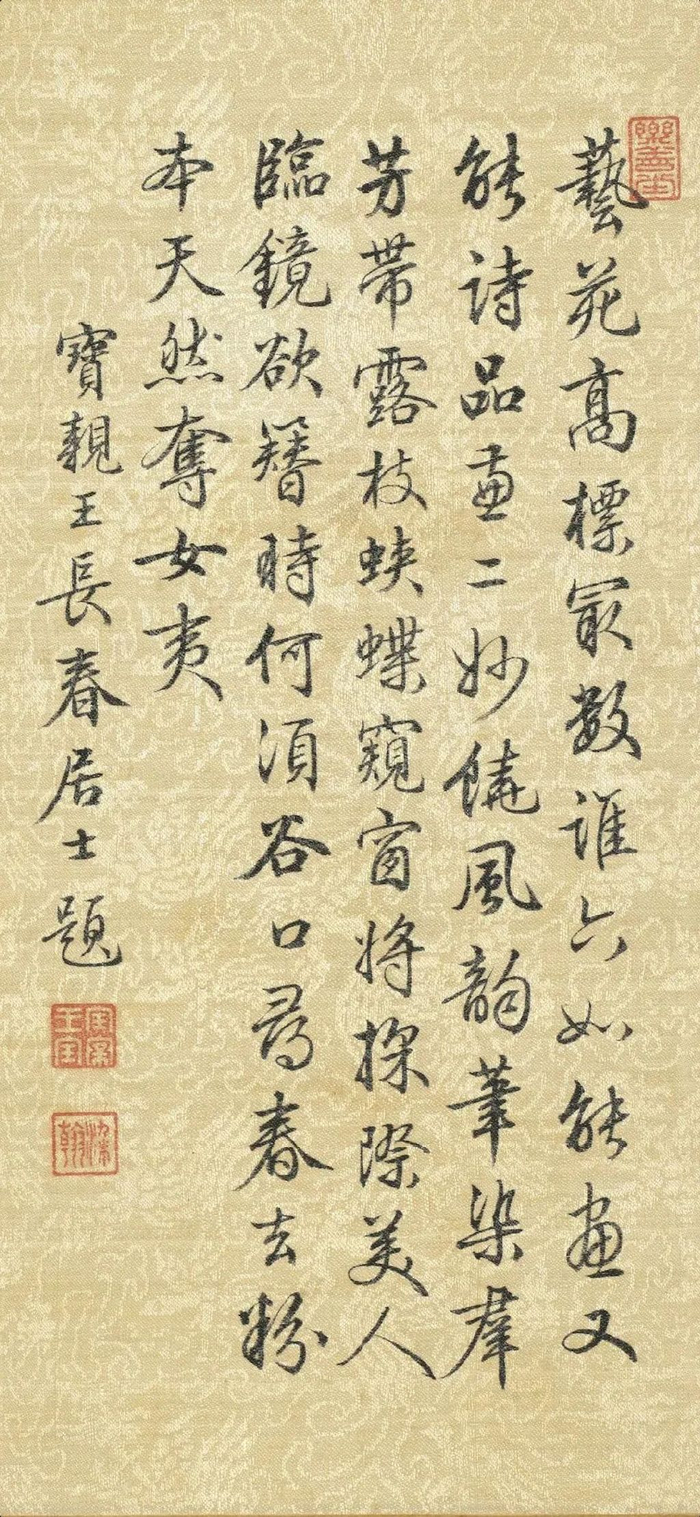 樂善堂
藝苑高標冣數誰六如能畫又
能詩品兼二妙饒風韻筆染羣
芳帶露枝蛺蝶窺窗將探際美人
臨鏡欲簪時何須谷口尋春去粉
本天然奪女夷
寶親王長春居士題
寶親王寶